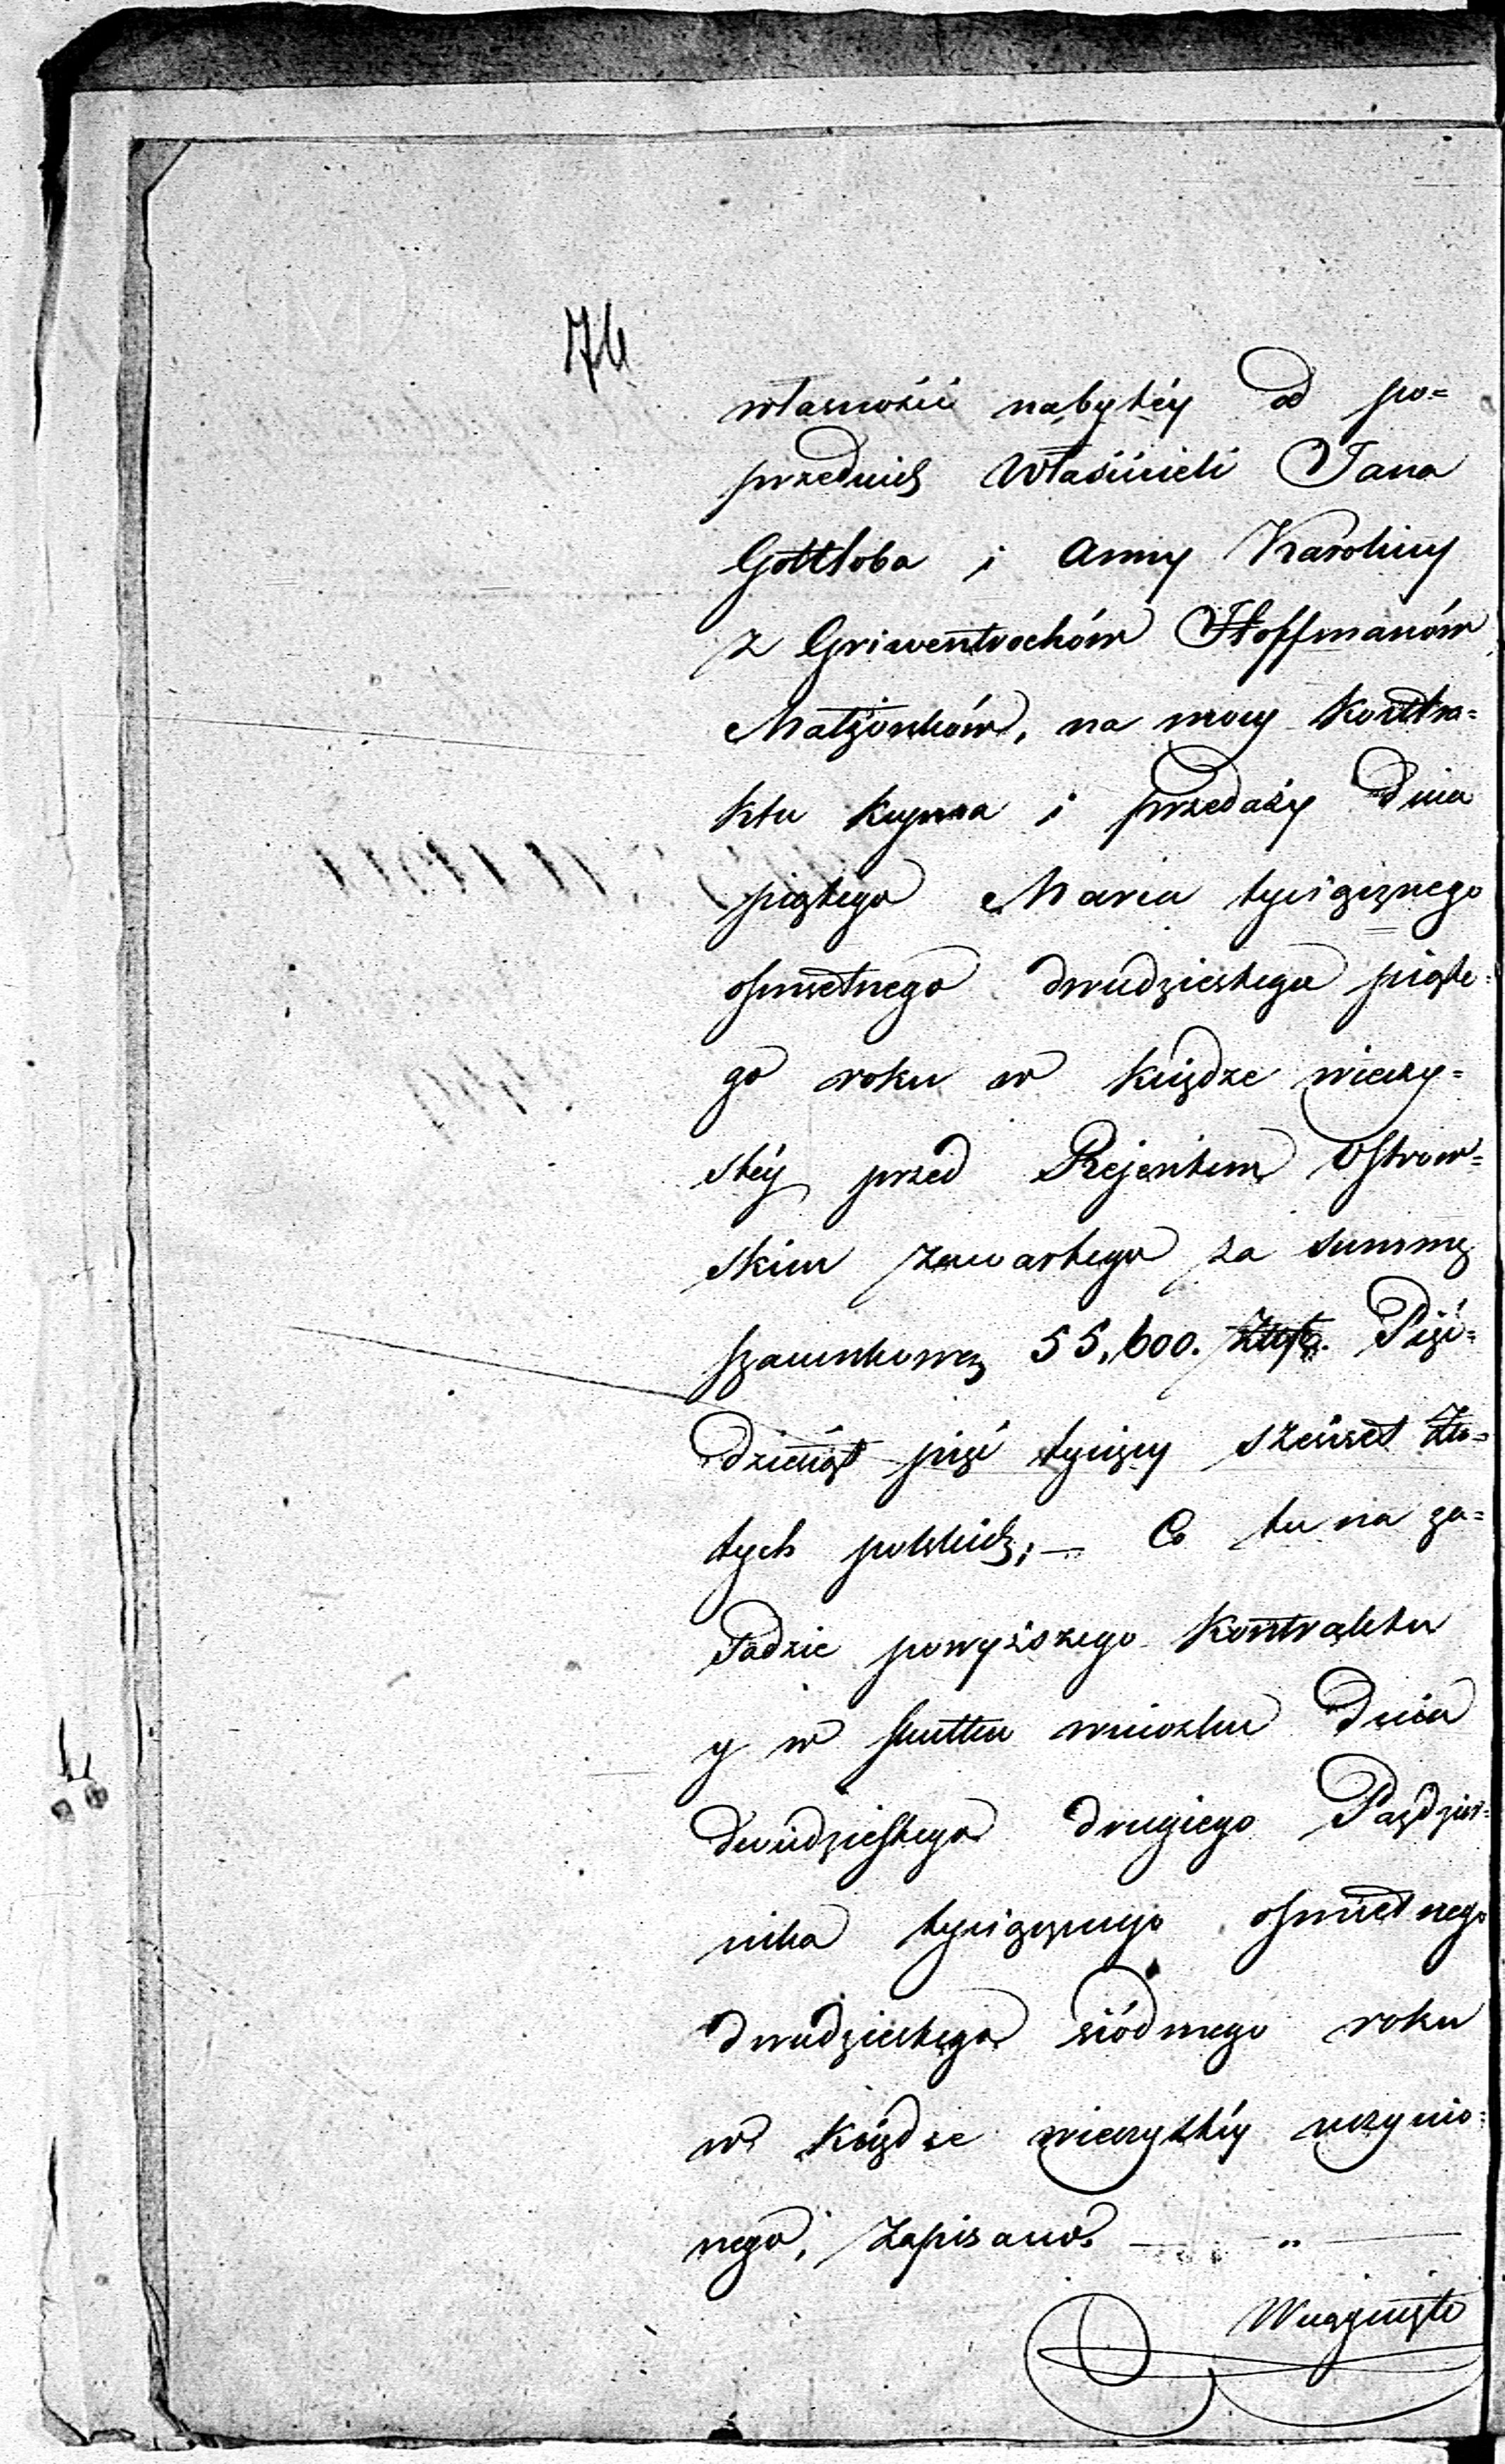 76
własność nabytéy od po=
przednich Właścicieli Jana
Gottloba i Anny Karoliny
z Griwentrochów Hoffmanów
Małżonków, na mocy Kontra=
ktu Kupna i przedaży Dnia
piątego Marca tysiącznego
osmsetnego dwudziestego piąte=
go roku w Księdze wieczy=
stéy przed Rejentem Ostrow=
skim zawartego za summę
szacunkową 55,600. Pięć=
dziesiąt pięć tysięcy sześćset Zło=
tych polskich; — Co tu na za=
sadzie powyższego Kontraktu
y w skutku wniosku Dnia
Dwudziestego drugiego Paździer=
nika tysiącznego osmsetnego
dwudziestego siódmego roku
w Księdze wieczystéy uczynio=
nego, Zapisano. — „ —